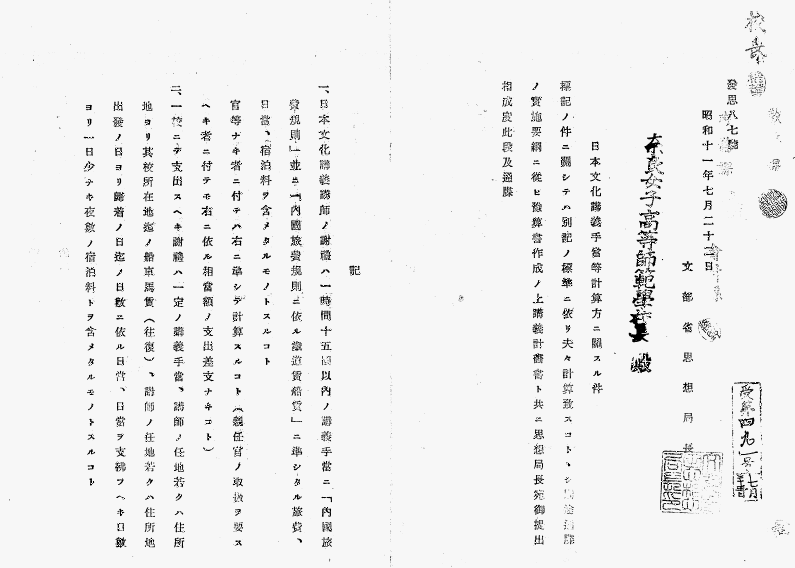 發思八七號
昭和十一年七月二十二日
文部省思想局長
奈良女子高等師範學校長 殿
日本文化講義手當等計算方ニ關スル件
標記ノ件ニ關シテハ別記ノ標準ニ依リ夫々計算致スコトヽシ
ノ實施要綱ニ從ヒ豫算書作成ノ上講義計畫書ト共ニ思想局長宛御提出
相成度此段及通牒
記
一、日本文化講義講師ノ謝禮ハ一時間十五圓以內ノ講義手當ニ「內國旅
費規則」並ニ「內國旅費規則ニ依ル鐵道賃船賃」ニ準シタル旅費、
日當、宿泊料ヲ含メタルモノトスルコト
官等ナキ者ニ付テハ右ニ準シテ計算スルコト(親任官ノ取扱ヲ要ス
ヘキ者ニ付テモ右ニ依ル相當額ノ支出差支ナキコト)
二、一校ニテ支出スヘキ謝禮ハ一定ノ講義手當、講師ノ任地若クハ住所
地ヨリ其校所在地迄ノ船車馬賃(往復)、講師ノ任地若クハ住所地
出發ノ日ヨリ歸着ノ日迄ノ日數ニ依ル日當、日當ヲ支拂フヘキ日數
ヨリ一日少ナキ夜數ノ宿泊料トヲ含メタルモノトスルコト
受第四九一号
七月